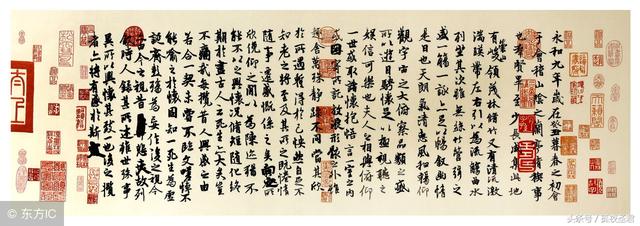 永和九年歲在癸丑暮春之初會
于會稽山陰之蘭亭脩稧事
也群賢畢至少長咸集此地
有崇山峻領茂林脩竹又有清流激
湍暎帶左右引以為流觴曲水
列坐其次雖無絲竹管弦之
盛一觴一詠亦足以暢敘幽情
是日也天朗氣清惠風和暢仰
觀宇宙之大俯察品類之盛
所以遊目騁懷足以極視聽之
娛信可樂也夫人之相與俯仰
一世或取諸懷抱悟言一室之內
或因寄所託放浪形骸之外雖
趣舍萬殊靜躁不同當其欣
於所遇蹔得於己怏然自足不
知老之將至及其所之既惓情
隨事遷感慨係之矣向之所
欣俛仰之閒以為陳迹猶不
能不以之興懷況脩短隨化終
期於盡古人云死生亦大矣豈
不痛哉每攬昔人興感之由
若合一契未嘗不臨文嗟悼不
能喻之於懷固知一死生為虛
誕齊彭殤為妄作後之視今
亦由今之視昔悲夫故列
敘時人錄其所述雖世殊事
異所以興懷其致一也後之攬
者亦將有感於斯文
© 东方IC
头条号